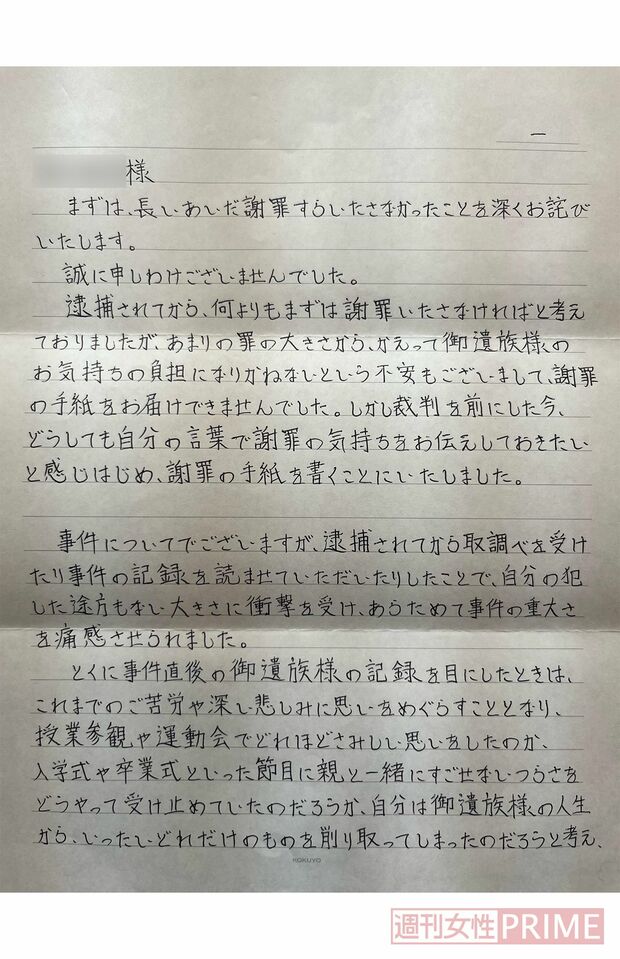 一
様
まずは、長いあいだ謝罪すらいたさなかったことを深くお詫び
いたします。
誠に申しわけございませんでした。
逮捕されてから、何よりもまずは謝罪いたさなければと考え
ておりましたが、あまりの罪の大きさから、かえって御遺族様の
お気持ちの負担になりかねないという不安もございまして、謝罪
の手紙をお届けできませんでした。しかし裁判を前にした今、
どうしても自分の言葉で謝罪の気持ちをお伝えしておきたい
と感じはじめ、謝罪の手紙を書くことにいたしました。
事件についてでございますが、逮捕されてから取調べを受け
たり事件の記録を読ませていただいたりしたことで、自分の犯
した途方もない大きさに衝撃を受け、あらためて事件の重大さ
を痛感させられました。
とくに事件直後の御遺族様の記録を目にしたときは、
これまでのご苦労や深い悲しみに思いをめぐらすこととなり、
授業参観や運動会でどれほどさみしい思いをしたのか、
入学式や卒業式といった節目に親と一緒にすごせないつらさを
どうやって受け止めていたのだろうか、自分は御遺族様の人生
から、いったいどれだけのものを削り取ってしまったのだろうと考え、
KOKUYO
週刊女性PRIME